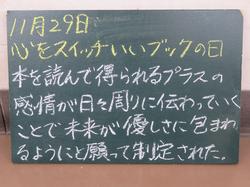 11月29日
心をスイッチいいブックの日
本を読んで得られるプラスの
感情が日々周りに伝わっていく
ことで未来が優しさに包まれ
るようにと願って制定された。